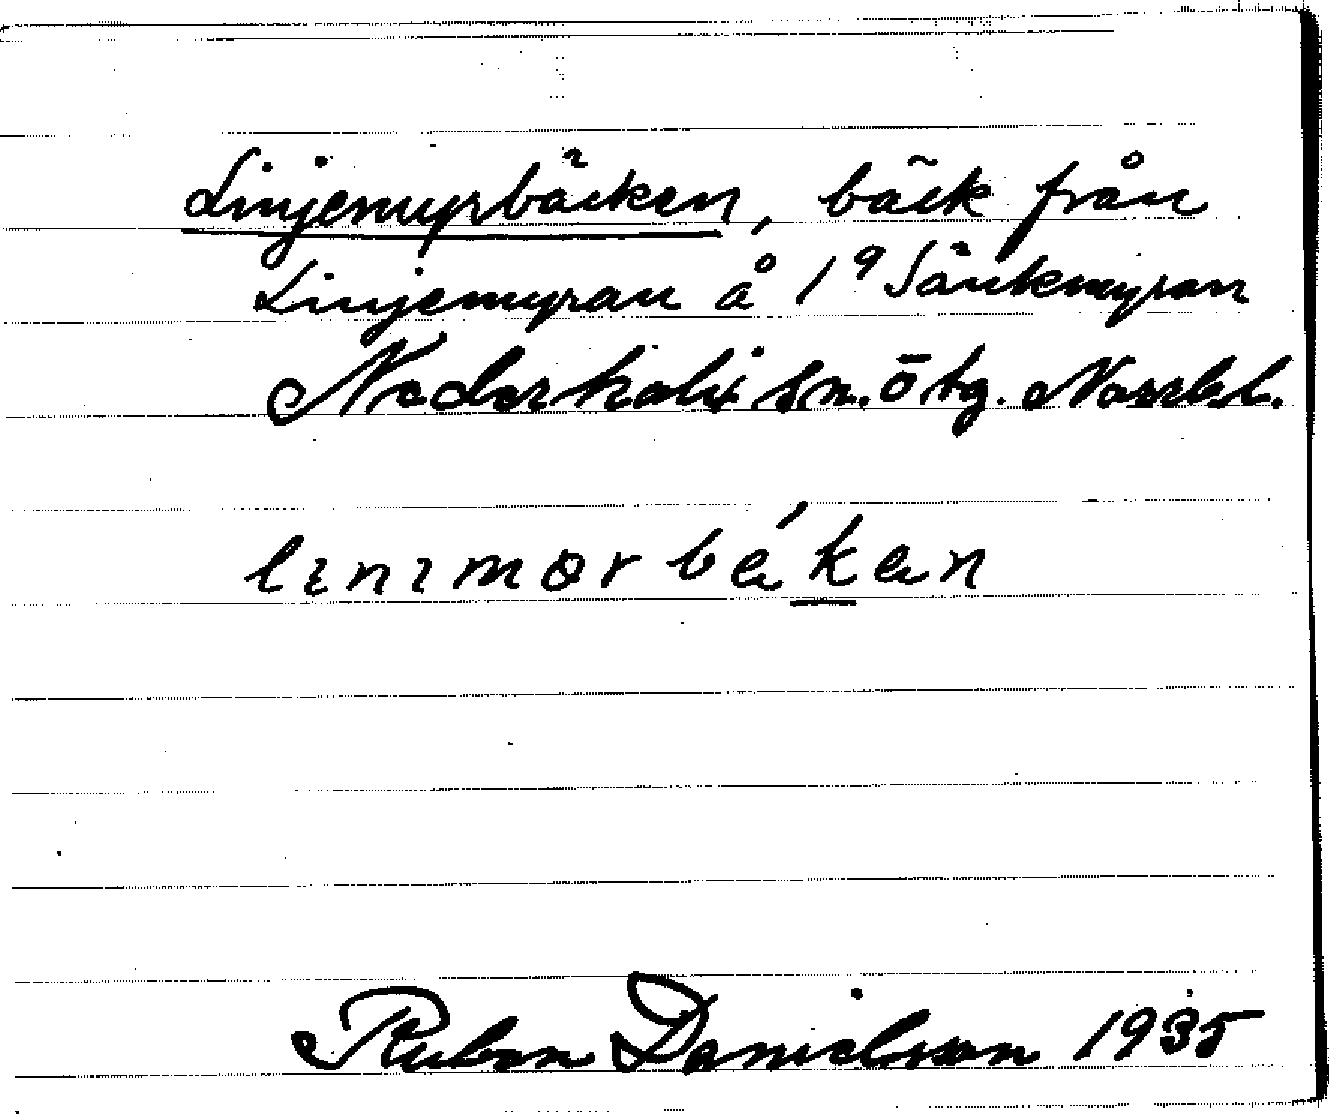 Linjemyrbäcken, bäck från
Linjemyran å 19 Sänkmyran
Nederkalix sn. ö tg. Norrb.l.
lınımørbékan
Ruben Danielsson 1935